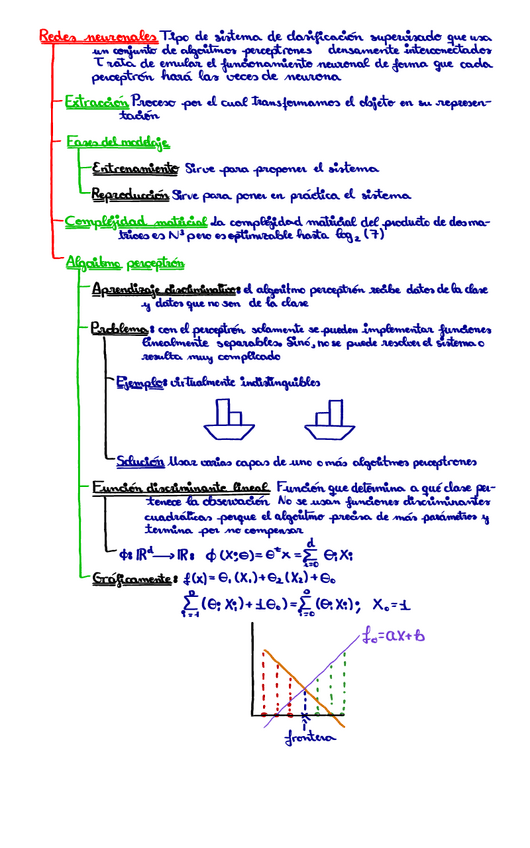 Redes neuronales Tipo de sistema de clasificación supervisado que usa
un conjunto de algoritmos perceptrones densamente interconectados
Trata de emular el funcionamiento neuronal de forma que cada
perceptrón hará las veces de neurona
Extracción Proceso por el cual transformamos el objeto en su represen-
tación
Fases del modelaje
Entrenamiento Sirve para proponer el sistema
Reproducción Sirve para poner en práctica el sistema
Complejidad matricial La complejidad matricial del producto de dos ma-
trices es N³ pero es optimizable hasta log₂(7)
Algoritmo perceptrón
Aprendizaje discriminativo: el algoritmo perceptrón recibe datos de la clase
y datos que no son de la clase
Problema: con el perceptrón solamente se pueden implementar funciones
linealmente separables. Sinó, no se puede resolver el sistema o
resulta muy complicado
Ejemplo: virtualmente indistinguibles
Solución Usar varias capas de uno o más algoritmos perceptrones
Función discriminante lineal Función que determina a qué clase per-
tenece la observación No se usan funciones discriminantes
cuadráticas porque el algoritmo precisa de más parámetros y
termina por no compensar
ϕ: ℝᵈ → ℝ: ϕ(X;Θ)=Θᵗx=∑ᵈᵢ₌₀ Θᵢ Xᵢ
Gráficamente: f(x)=Θ₁(X₁)+Θ₂(X₂)+Θ₀
∑ᵢ₌₁(Θᵢ Xᵢ)+1Θ₀)=∑ᵢ₌₀(Θᵢ Xᵢ); X₀=1
f₀=ax+b
frontera